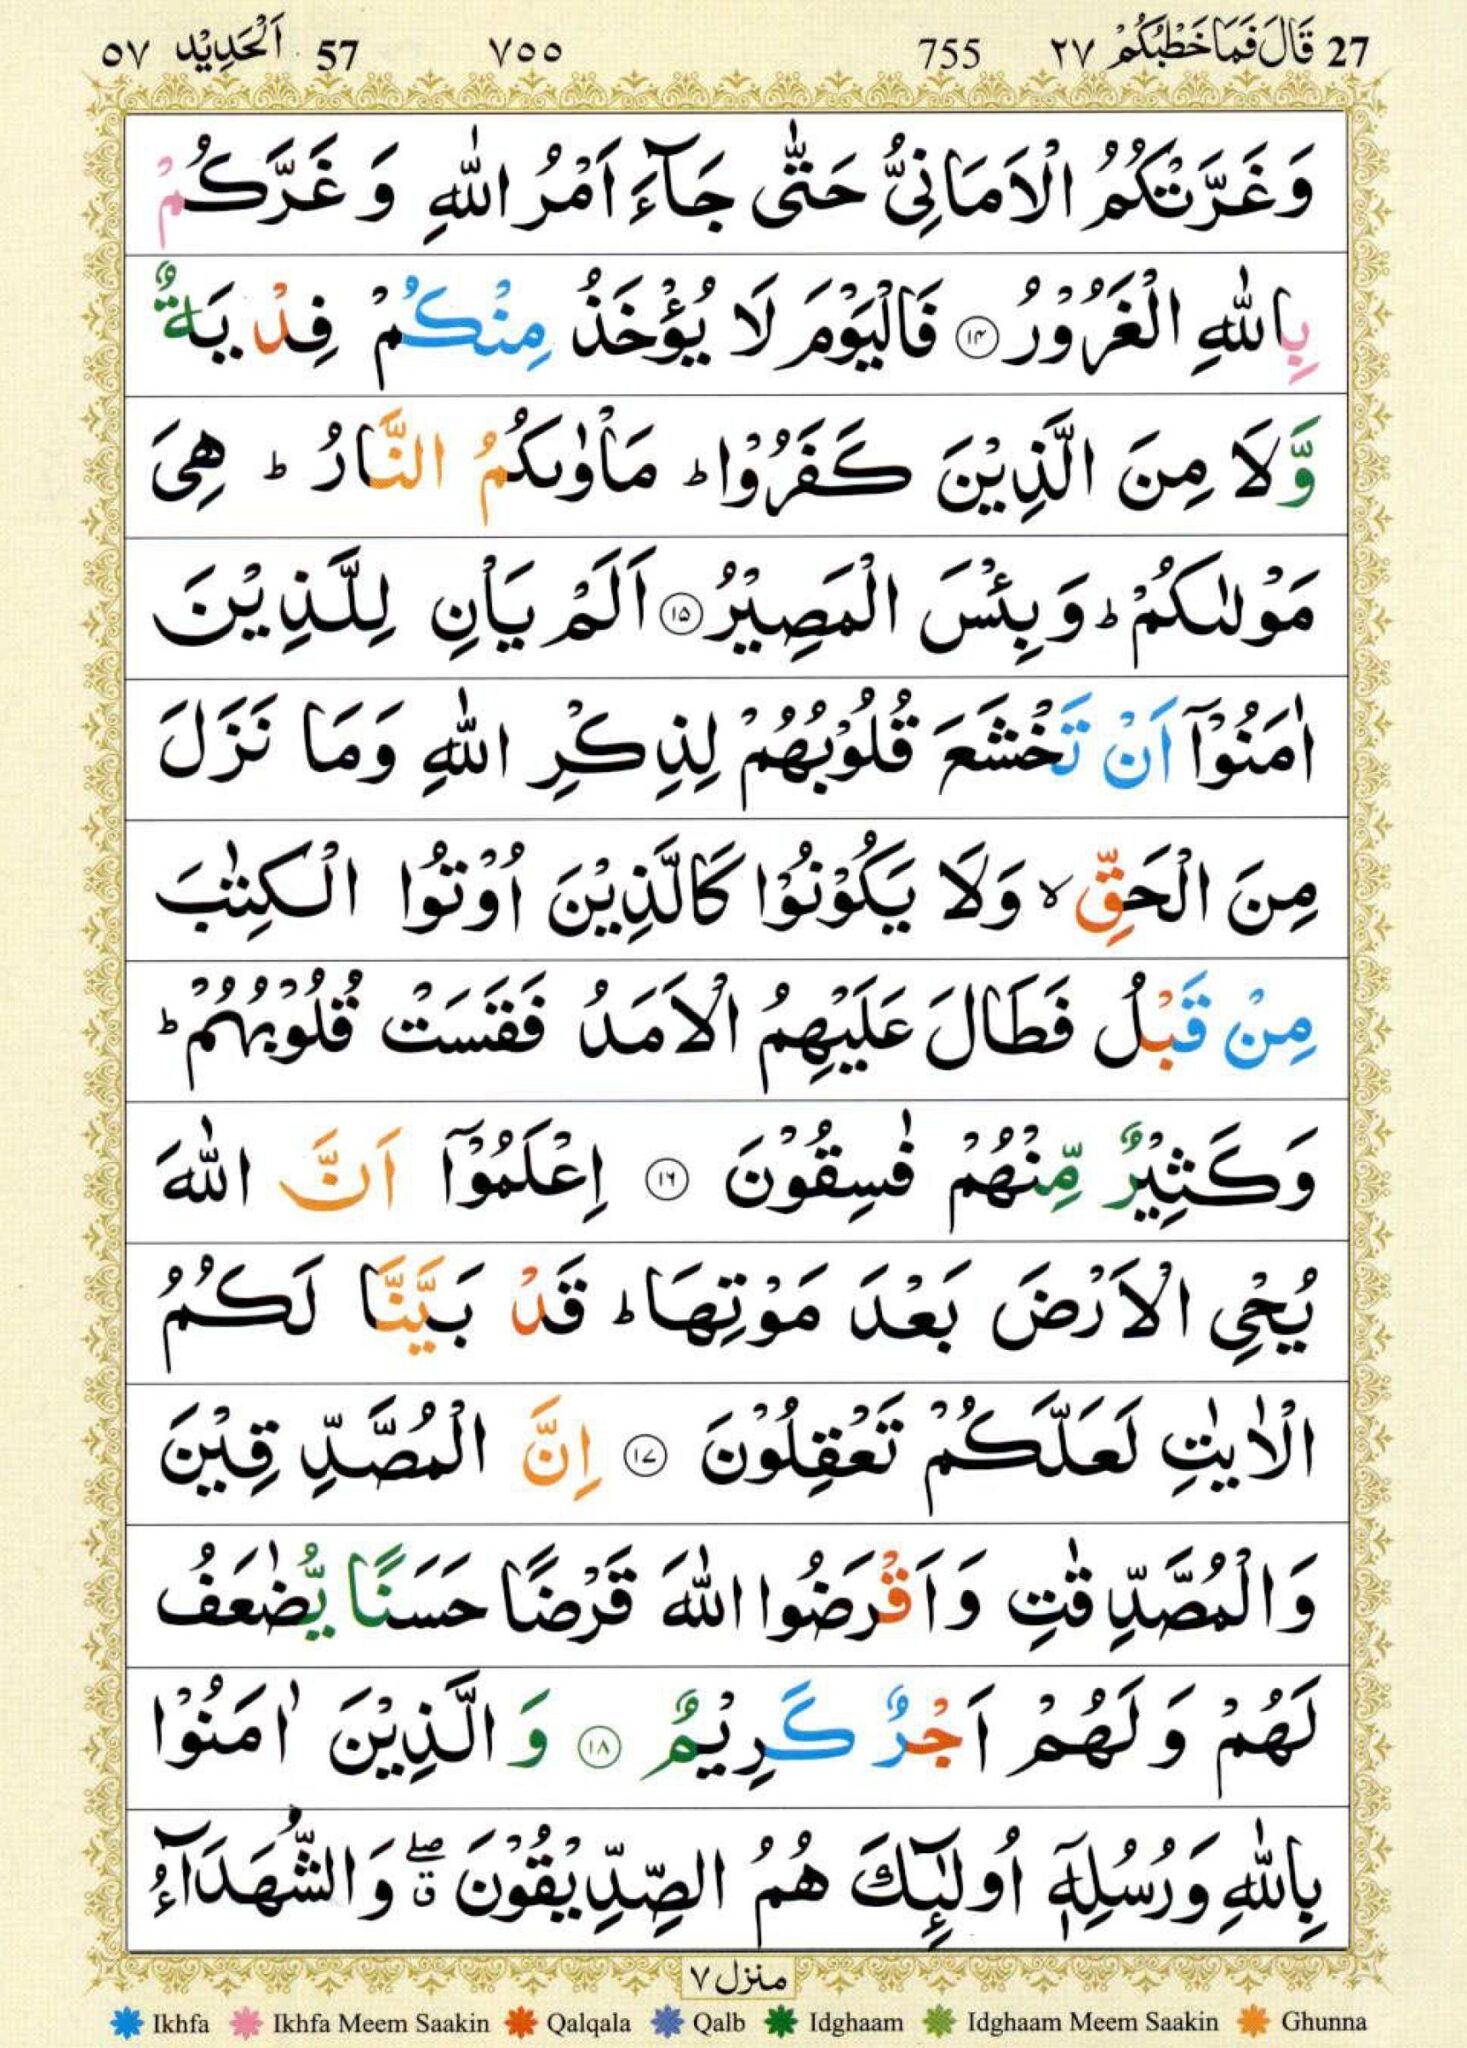 27 قَالَ فَمَا خَطْبُكُمْ ٢٧ 755 ٧٥٥ 57 اَلْحَدِيْد ٥٧
وَ غَرَّتْكُمُ الْاَمَانِيُّ حَتّٰى جَآءَ اَمْرُ اللّٰهِ وَ غَرَّكُمْ
بِاللّٰهِ الْغَرُوْرُ ۝١٤ فَالْيَوْمَ لَا يُؤْخَذُ مِنْكُمْ فِدْيَةٌ
وَّلَا مِنَ الَّذِيْنَ كَفَرُوْا ؕ مَاْوٰىكُمُ النَّارُ ؕ هِيَ
مَوْلٰىكُمْ ؕ وَ بِئْسَ الْمَصِيْرُ ۝١٥ اَلَمْ يَاْنِ لِلَّذِيْنَ
اٰمَنُوْۤا اَنْ تَخْشَعَ قُلُوْبُهُمْ لِذِكْرِ اللّٰهِ وَمَا نَزَلَ
مِنَ الْحَقِّ ۙ وَلَا يَكُوْنُوْا كَالَّذِيْنَ اُوْتُوا الْكِتٰبَ
مِنْ قَبْلُ فَطَالَ عَلَيْهِمُ الْاَمَدُ فَقَسَتْ قُلُوْبُهُمْ ؕ
وَكَثِيْرٌ مِّنْهُمْ فٰسِقُوْنَ ۝١٦ اِعْلَمُوْۤا اَنَّ اللّٰهَ
يُحْيِ الْاَرْضَ بَعْدَ مَوْتِهَا ؕ قَدْ بَيَّنَّا لَكُمُ
الْاٰيٰتِ لَعَلَّكُمْ تَعْقِلُوْنَ ۝١٧ اِنَّ الْمُصَّدِّقِيْنَ
وَالْمُصَّدِّقٰتِ وَاَقْرَضُوا اللّٰهَ قَرْضًا حَسَنًا يُّضٰعَفُ
لَهُمْ وَلَهُمْ اَجْرٌ كَرِيْمٌ ۝١٨ وَالَّذِيْنَ اٰمَنُوْا
بِاللّٰهِ وَرُسُلِهٖۤ اُولٰٓئِكَ هُمُ الصِّدِّيْقُوْنَ ۖۗ وَالشُّهَدَآءُ
منزل ٧
Ikhfa Ikhfa Meem Saakin Qalqala Qalb Idghaam Idghaam Meem Saakin Ghunna